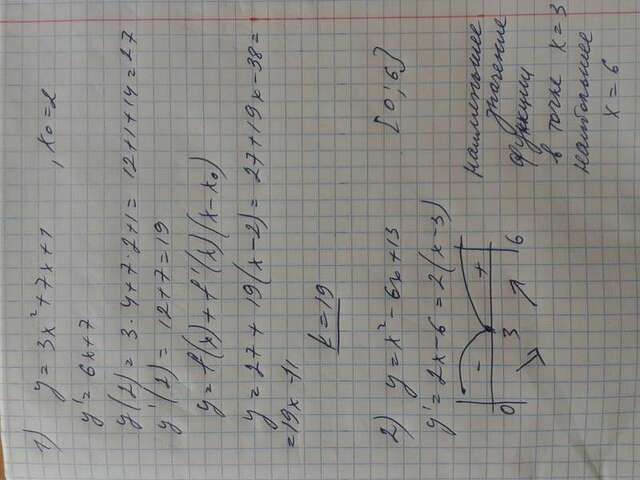 1) y = 3x² + 7x + 1 , x₀ = 2
y' = 6x + 7
y(2) = 3 · 4 + 7 · 2 + 1 = 12 + 1 + 14 = 27
y'(2) = 12 + 7 = 19
y = f(x) + f'(x)(x - x₀)
y = 27 + 19(x - 2) = 27 + 19x - 38 =
= 19x - 11
k = 19
2) y = x² - 6x + 13 [0; 6]
y' = 2x - 6 = 2(x - 3)
- +
0 3 6
наименьшее
значение
функции
в точке x = 3
наибольшее
x = 6